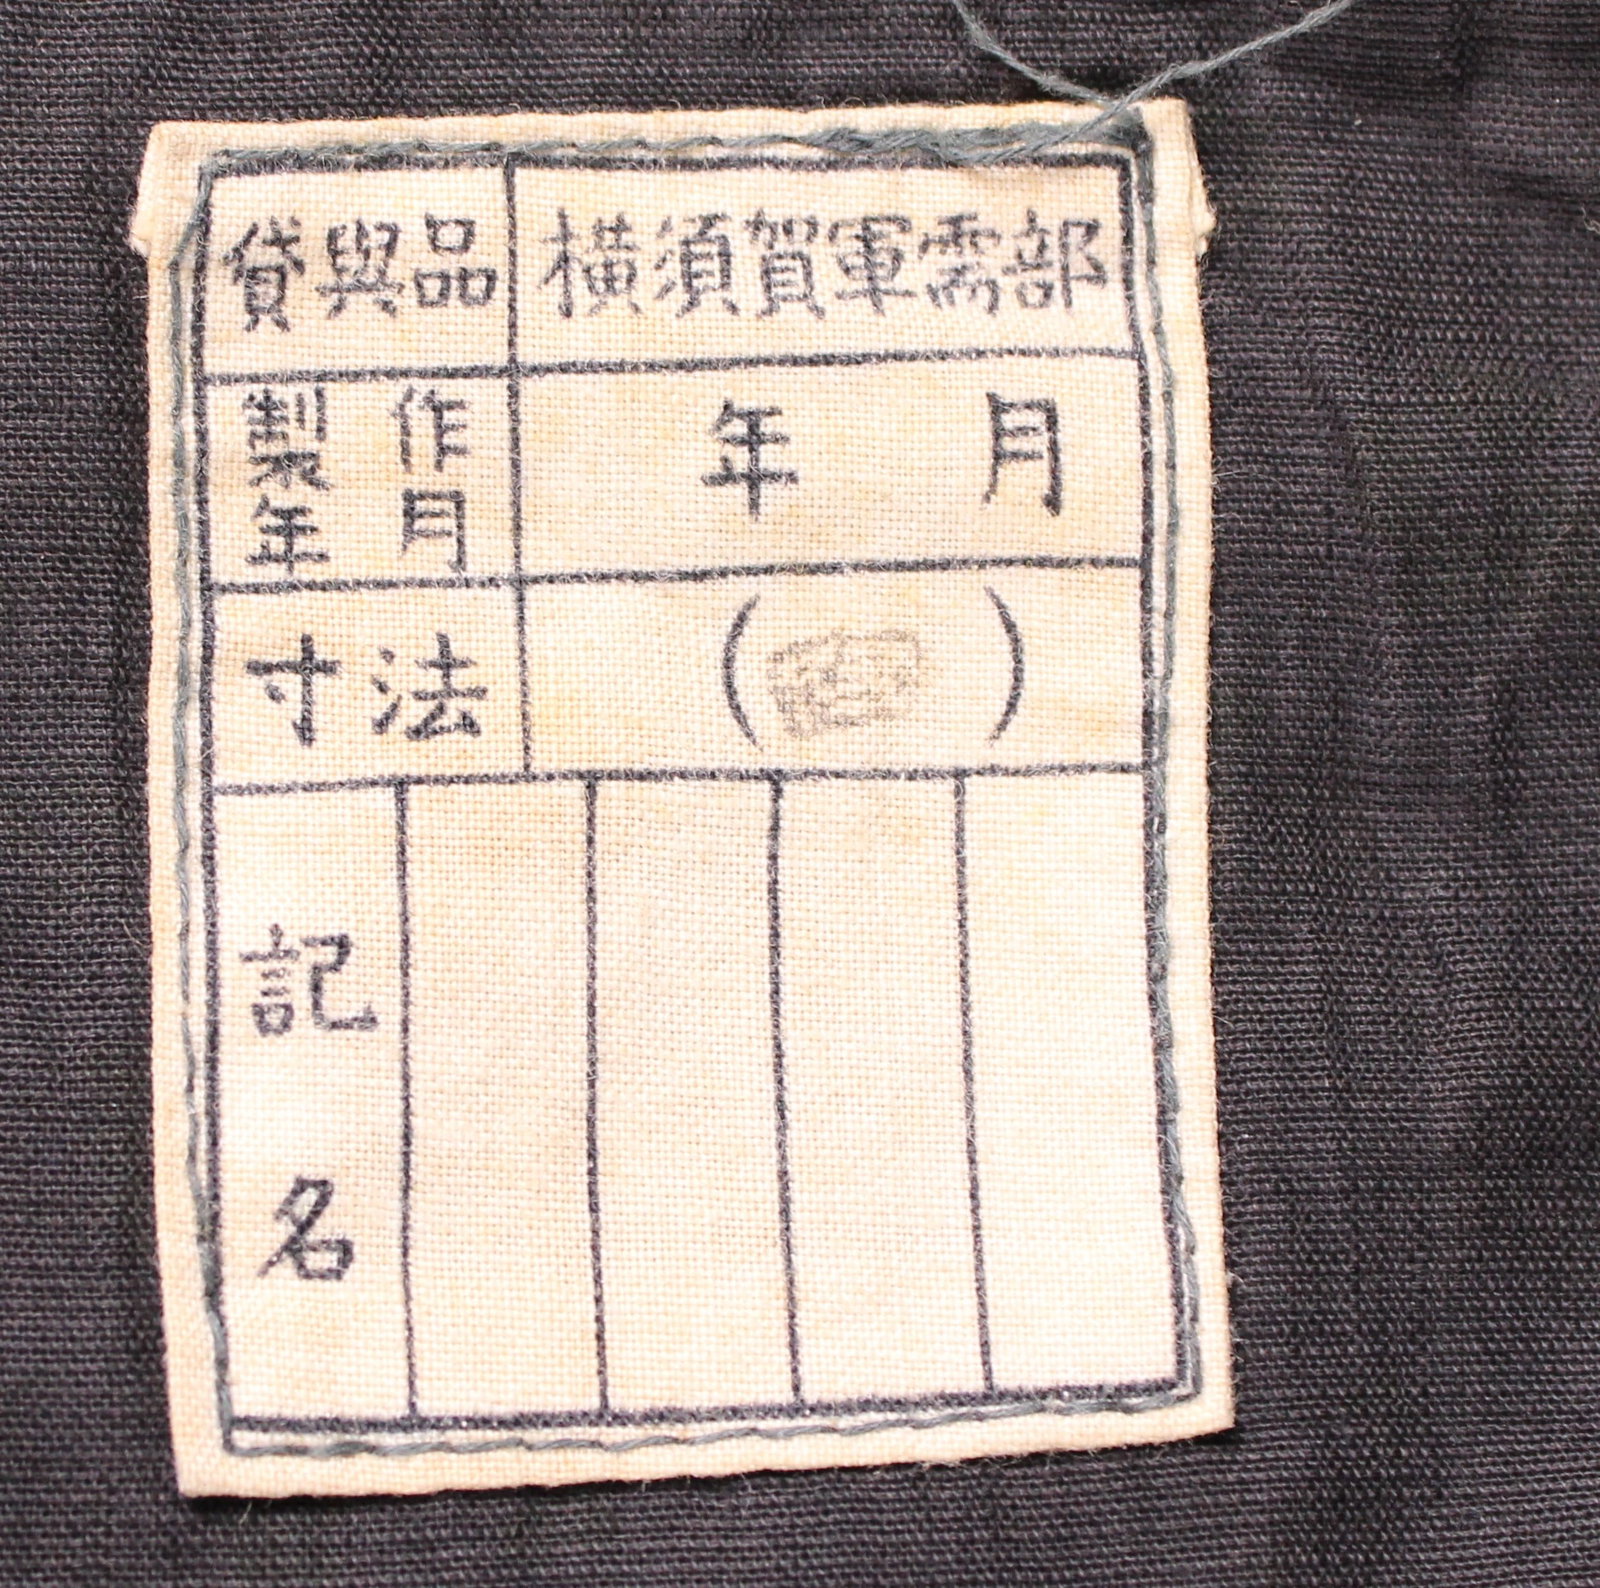 貸與品 横須賀軍需部
製作年月 年 月
寸法 ( )
記名